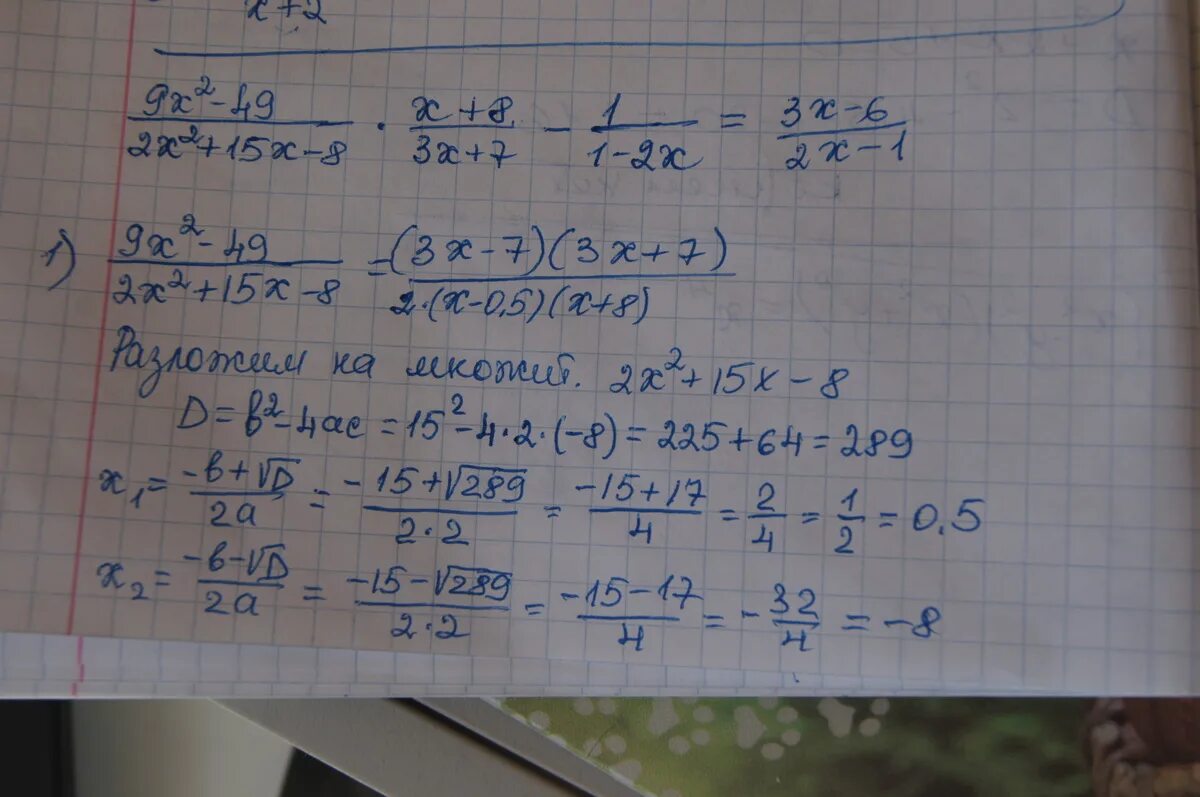 x+2
(9x²-49)/(2x²+15x-8) · (x+8)/(3x+7) - 1/(1-2x) = (3x-6)/(2x-1)
1) (9x²-49)/(2x²+15x-8) = (3x-7)(3x+7)/(2·(x-0,5)(x+8))
Разложим на множит. 2x²+15x-8
D=b²-4ac=15²-4·2·(-8)=225+64=289
x₁=(-b+√D)/(2a)=(-15+√289)/(2·2)=(-15+17)/4=2/4=1/2=0,5
x₂=(-b-√D)/(2a)=(-15-√289)/(2·2)=(-15-17)/4=-32/4=-8